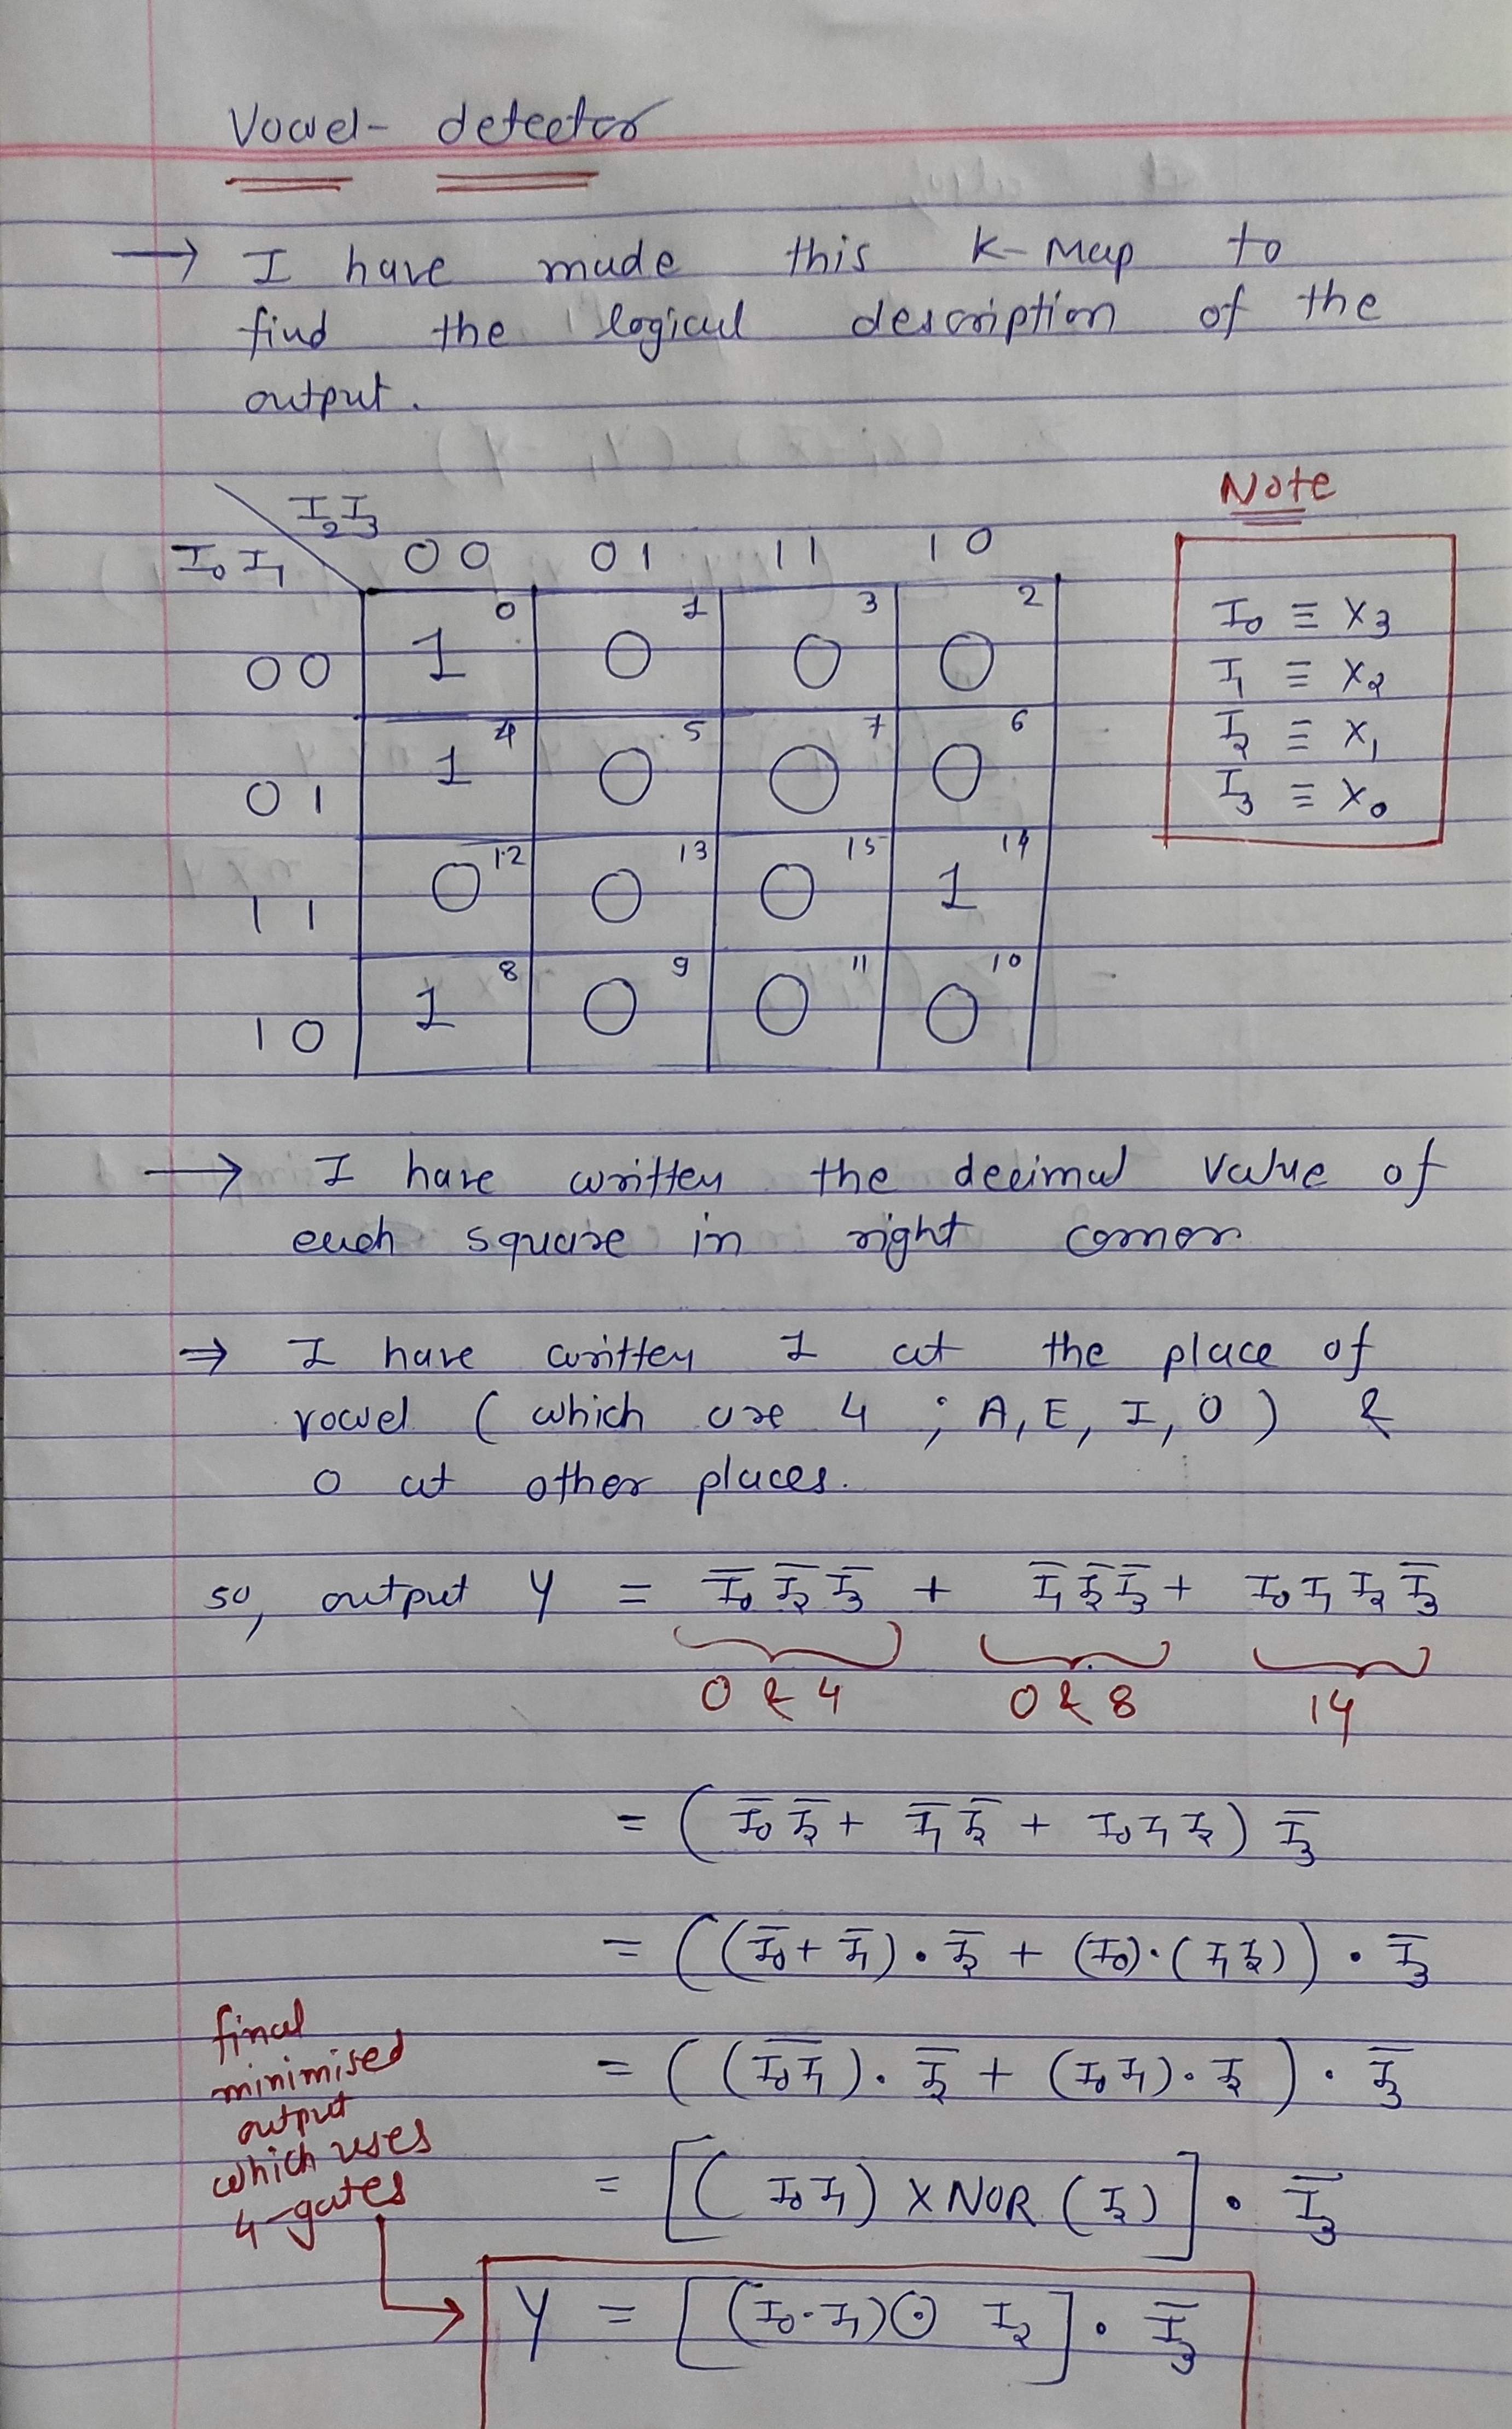 Vowel- detector
→ I have made this K-Map to
find the logical description of the
output.
Note
I₂I₃
I₀ I₁ 00 01 11 10
I₀ ≡ X₃
I₁ ≡ X₂
I₂ ≡ X₁
I₃ ≡ X₀
0 1 3 2
00 1 0 0 0
4 5 7 6
01 1 0 0 0
12 13 15 14
11 0 0 0 1
8 9 11 10
10 1 0 0 0
→ I have written the decimal value of
each square in right corner
⇒ I have written 1 at the place of
vowel ( which are 4 ; A, E, I, O ) &
0 at other places.
so, output Y = I̅₀ I̅₂ I̅₃ + I̅₁ I̅₂ I̅₃ + I₀ I₁ I₂ I̅₃
0 & 4 0 & 8 14
= ( I̅₀ I̅₂ + I̅₁ I̅₂ + I₀ I₁ I₂ ) I̅₃
= ( ( I̅₀ + I̅₁ ) · I̅₂ + (I₀) · ( I₁ I₂ ) ) · I̅₃
= ( ( \overline{I₀ I₁} ) · I̅₂ + ( I₀ I₁ ) · I₂ ) · I̅₃
= [ ( I₀ I₁ ) XNOR ( I₂ ) ] · I̅₃
final
minimised
output
which uses
4-gates
Y = [ ( I₀ · I₁ ) ⊙ I₂ ] · I̅₃